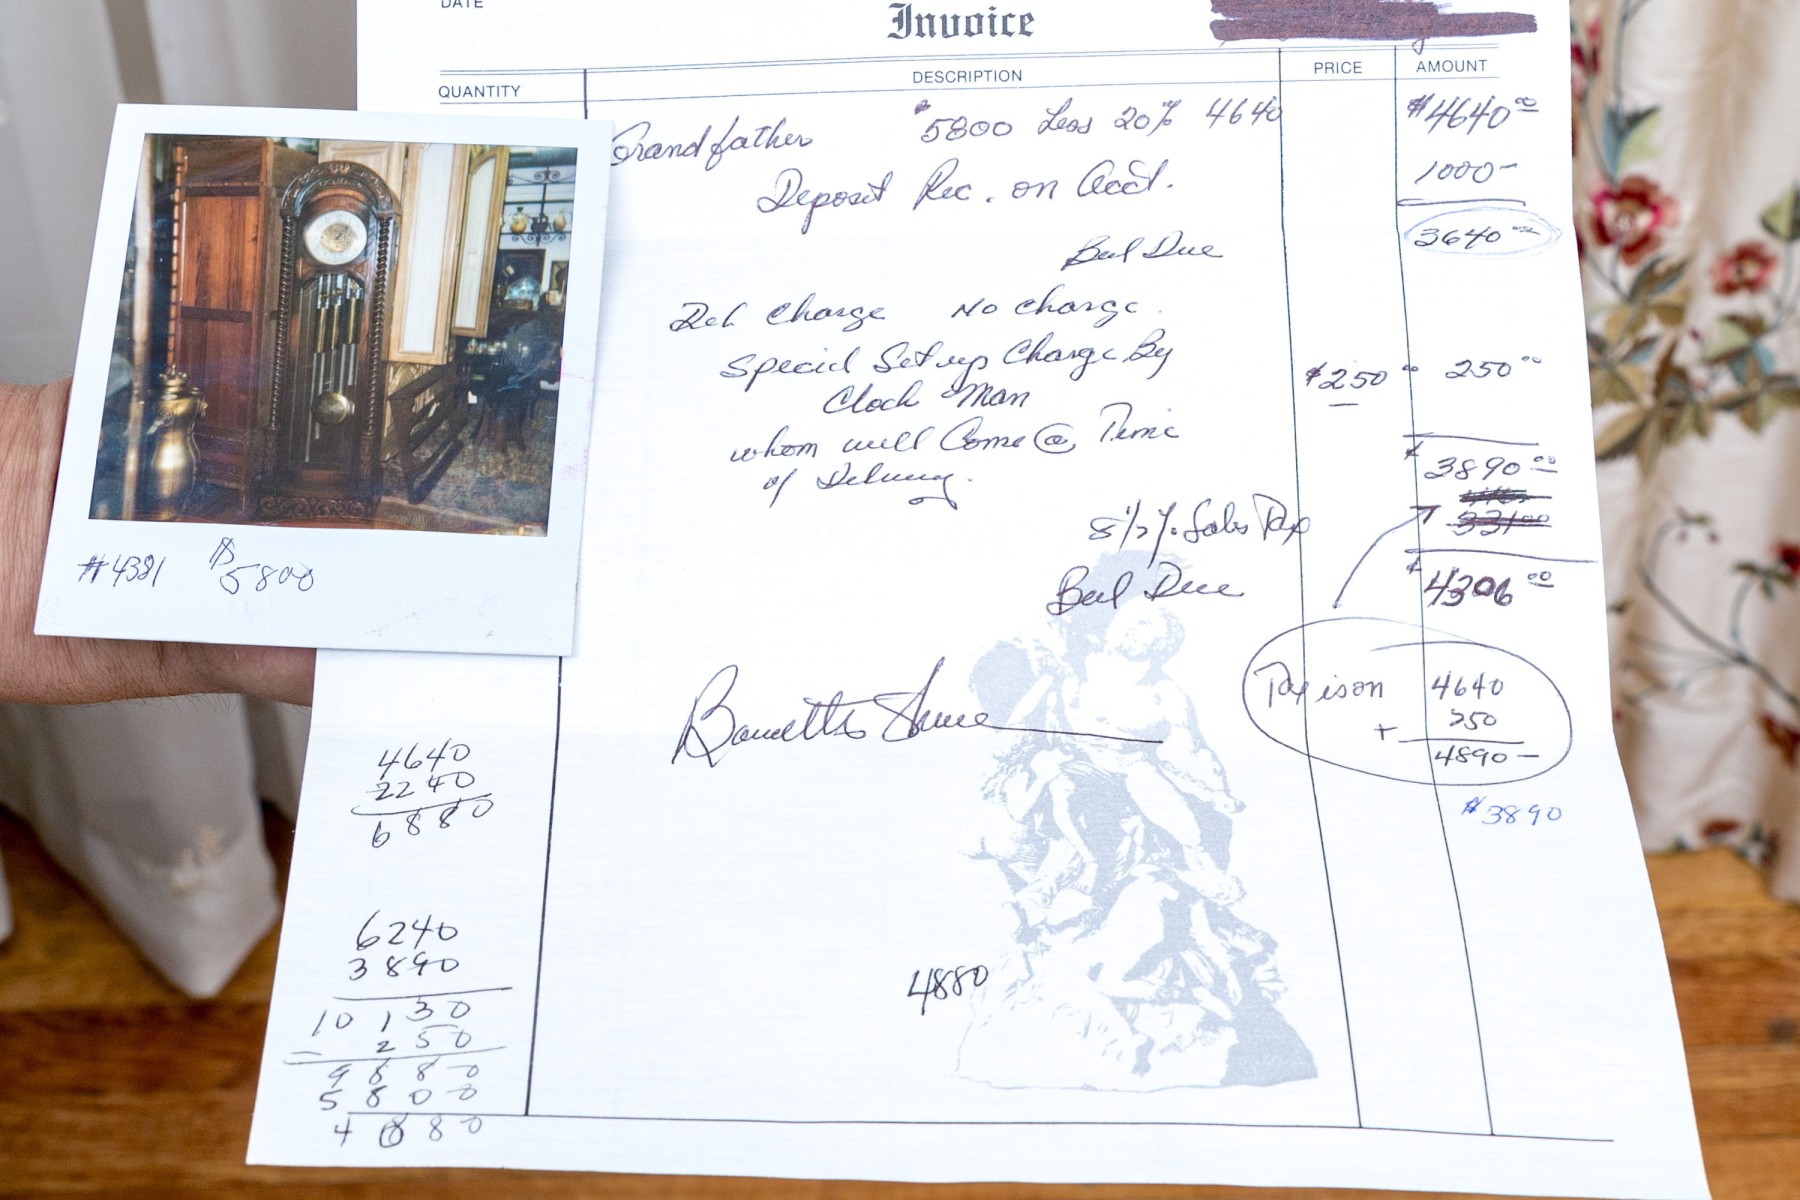 DATE
Invoice
QUANTITY DESCRIPTION PRICE AMOUNT
Grandfather $5800 Less 20% 4640 $4640 00
Deposit Rec. on Acct. 1000-
Bal Due 3640 00
Del Charge No Charge.
Special Set up Charge By $250 00 250 00
Clock Man
whom will Come @ Time
of Delivery.
$3890 00
8 1/2 % Sales Tax
Bal Due $4306 00
Tax is on 4640
250
+ 4890-
$3890
4640
2240
6880
6240
3890
10130
- 250
9880
5800
4080
4880
#4381 $5800